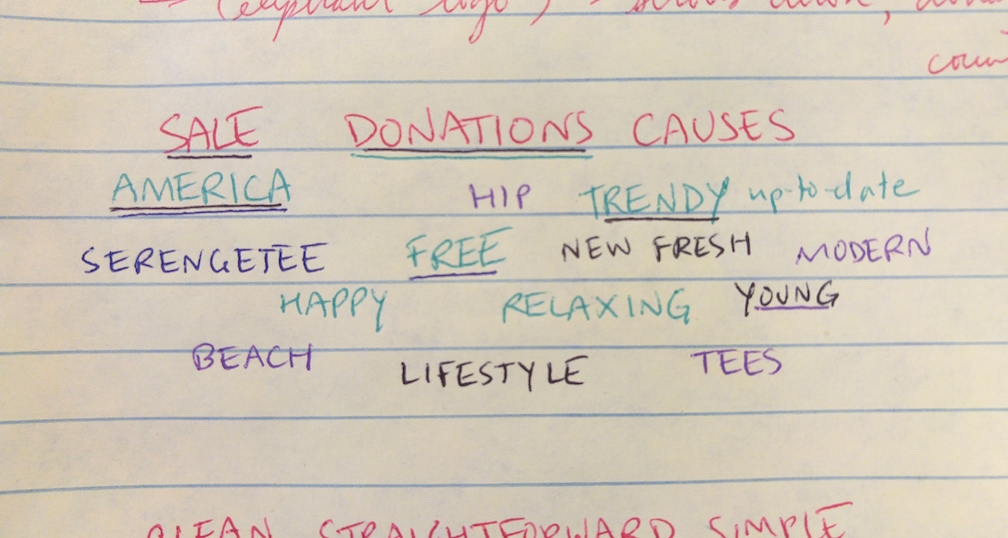 (elephant logo)
SALE DONATIONS CAUSES
AMERICA HIP TRENDY up-to-date
SERENGETEE FREE NEW FRESH MODERN
HAPPY RELAXING YOUNG
BEACH LIFESTYLE TEES
CLEAN STRAIGHTFORWARD SIMPLE